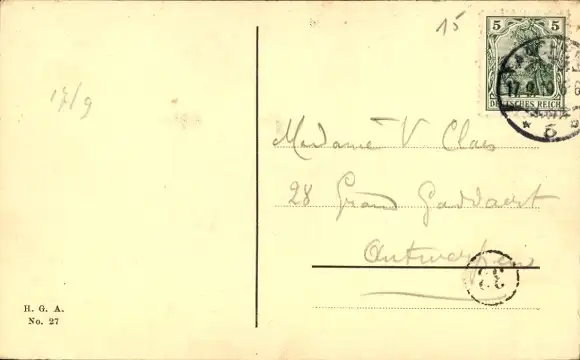 15
5 5
DEUTSCHES REICH
17/9
Madame V Claes
28 Grand Goddaert
Antwerpen
H. G. A.
No. 27